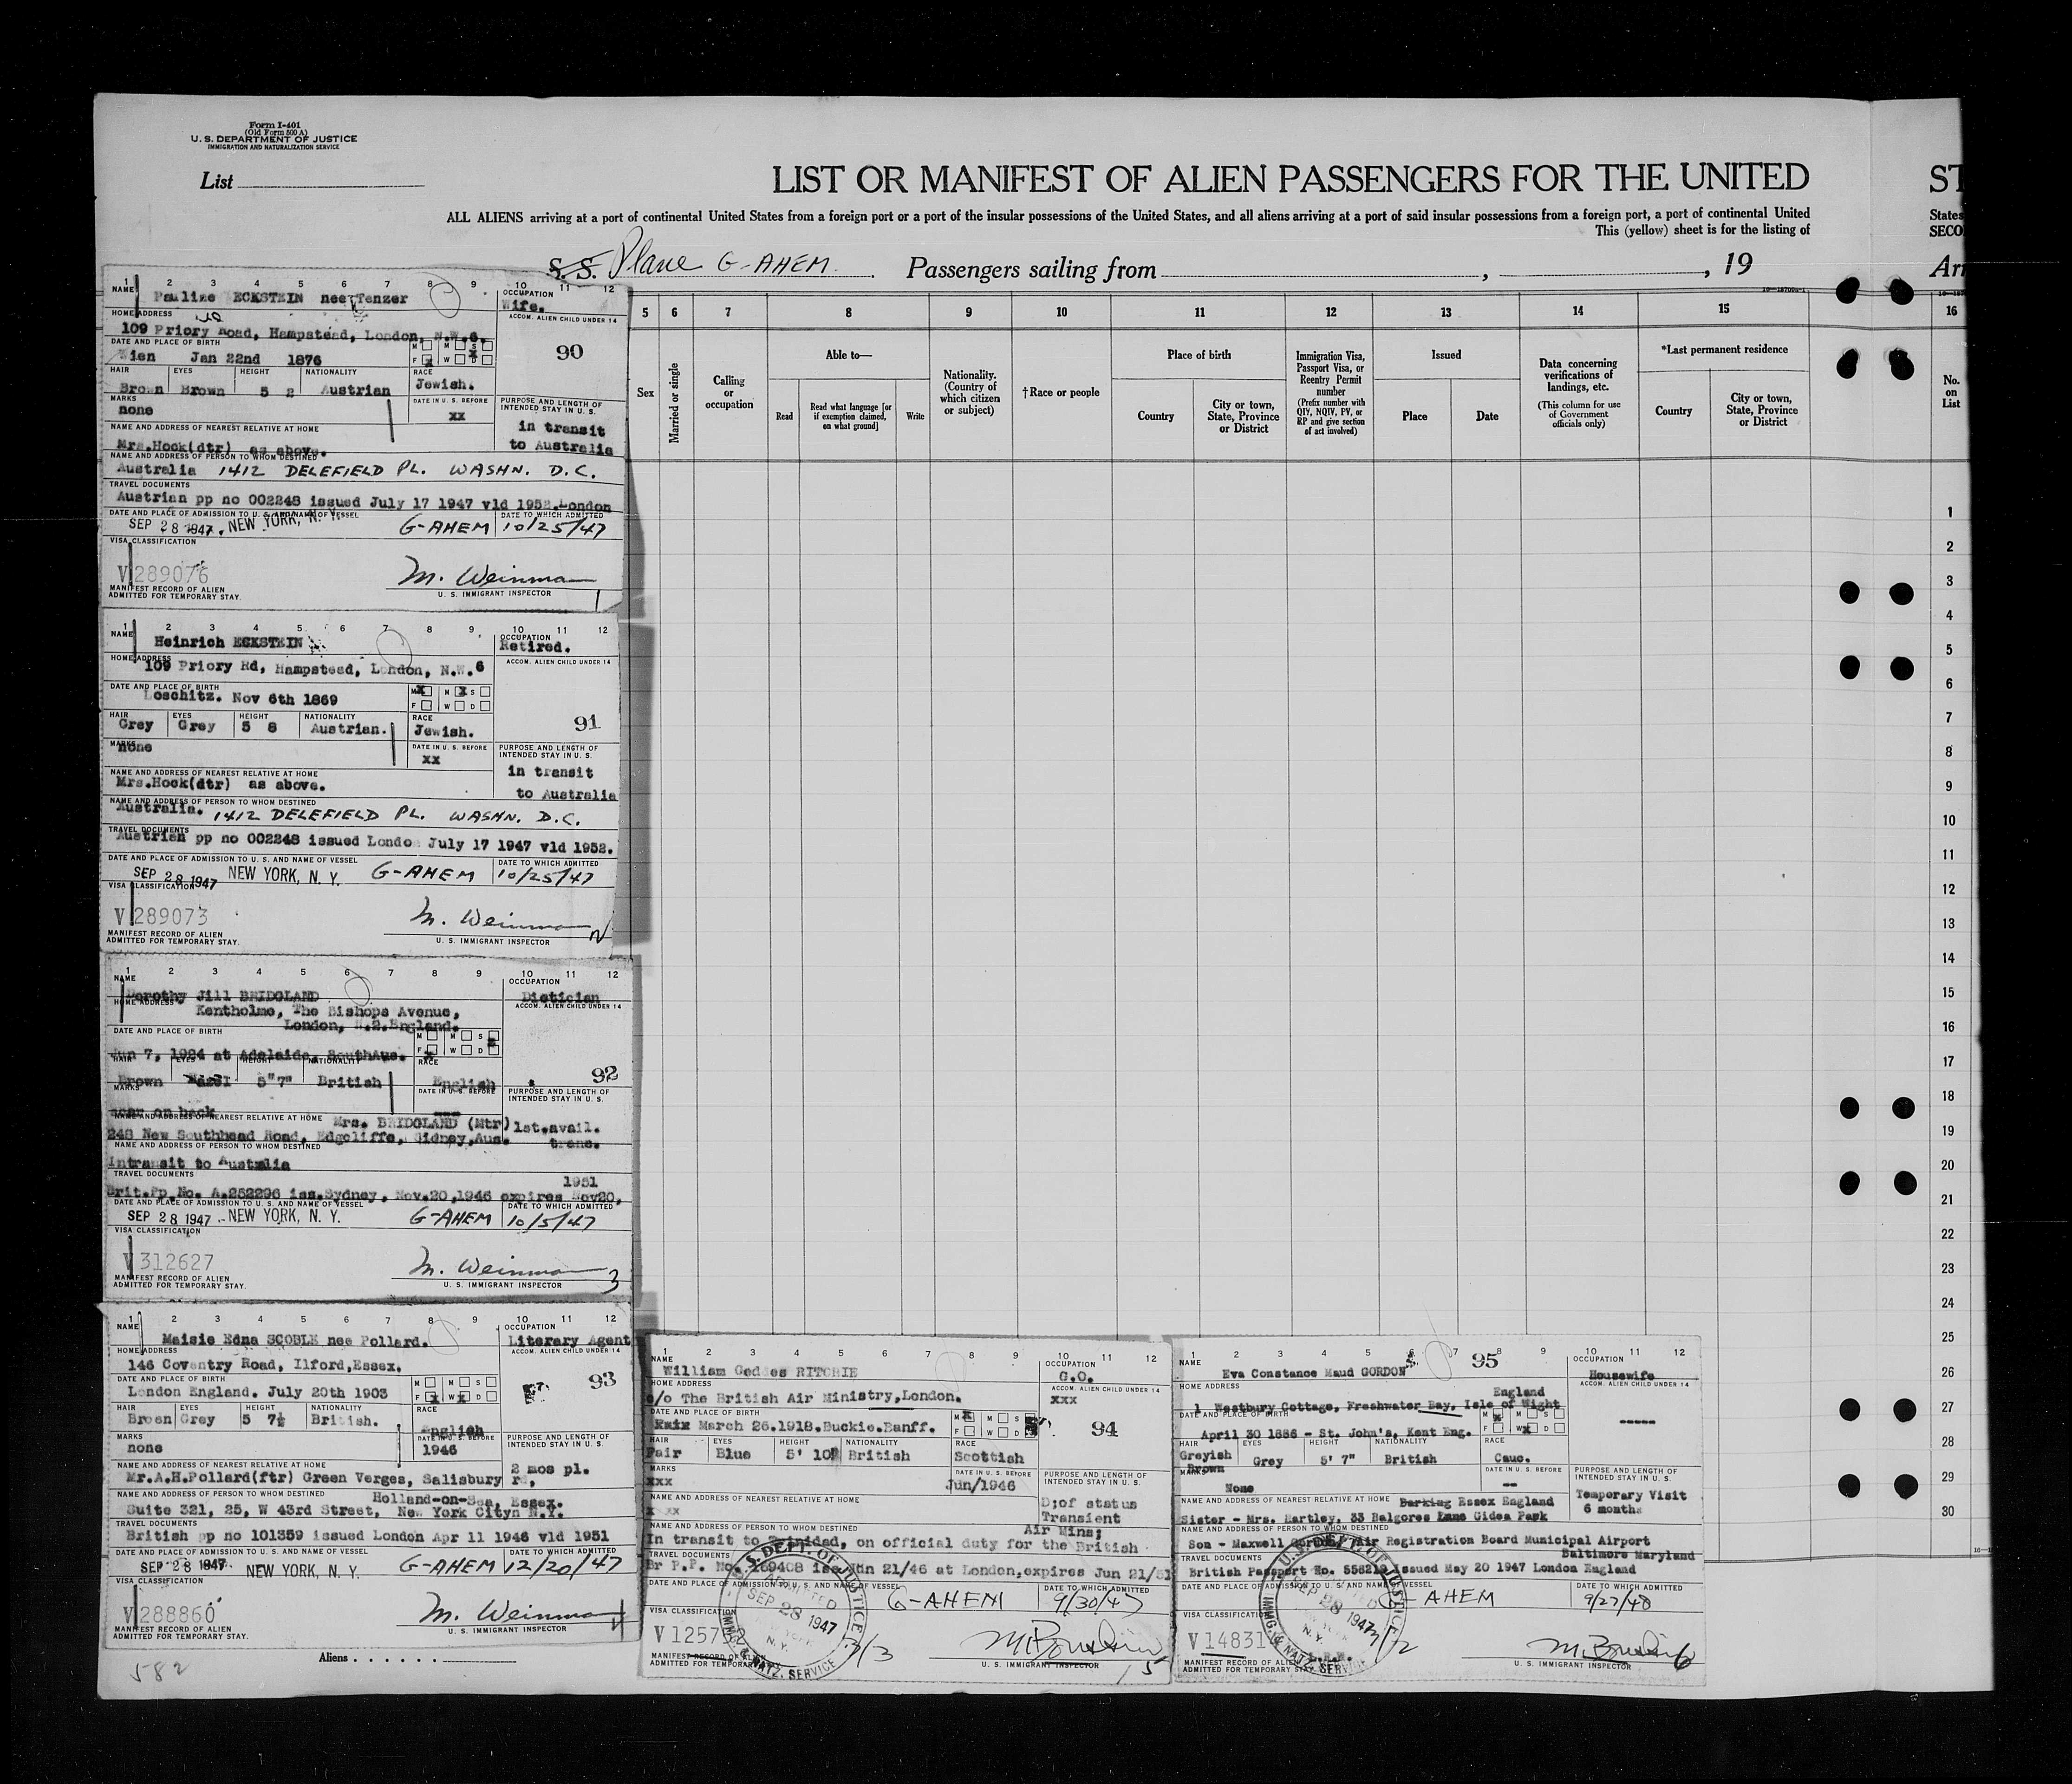 Form I-401
(Old Form 500 A)
U. S. DEPARTMENT OF JUSTICE
IMMIGRATION AND NATURALIZATION SERVICE
List
LIST OR MANIFEST OF ALIEN PASSENGERS FOR THE UNITED
ST
ALL ALIENS arriving at a port of continental United States from a foreign port or a port of the insular possessions of the United States, and all aliens arriving at a port of said insular possessions from a foreign port, a port of continental United
States
This (yellow) sheet is for the listing of
SECO
S. S. Plane G-AHEM. Passengers sailing from , , 19
Arr
5 6 7 8 9 10 11 12 13 14 15 16
Sex
Married or single
Calling or occupation
Able to—
Read
Read what language [or if exemption claimed, on what ground]
Write
Nationality. (Country of which citizen or subject)
†Race or people
Place of birth
Country
City or town, State, Province or District
Immigration Visa, Passport Visa, or Reentry Permit number
(Prefix number with QIV, NQIV, PV, or RP and give section of act involved)
Issued
Place
Date
Data concerning verifications of landings, etc.
(This column for use of Government officials only)
*Last permanent residence
Country
City or town, State, Province or District
No. on List
1
2
3
4
5
6
7
8
9
10
11
12
13
14
15
16
17
18
19
20
21
22
23
24
25
26
27
28
29
30
1 2 3 4 5 6 7 8 9 10 11 12
NAME Pauline ECKSTEIN nee Tenzer
OCCUPATION Wife.
HOME ADDRESS
109 Priory Road, Hampstead, London, N.W.6.
ACCOM. ALIEN CHILD UNDER 14
90
DATE AND PLACE OF BIRTH
Wien Jan 22nd 1876
M F M W S D
HAIR EYES HEIGHT NATIONALITY RACE
Brown Brown 5 2 Austrian Jewish.
MARKS
none
DATE IN U. S. BEFORE
xx
PURPOSE AND LENGTH OF INTENDED STAY IN U. S.
in transit
to Australia
NAME AND ADDRESS OF NEAREST RELATIVE AT HOME
Mrs.Hock(dtr) as above.
NAME AND ADDRESS OF PERSON TO WHOM DESTINED
Australia 1412 DELEFIELD PL. WASHN. D.C.
TRAVEL DOCUMENTS
Austrian pp no 002248 issued July 17 1947 vld 1952.London
DATE AND PLACE OF ADMISSION TO U. S. AND NAME OF VESSEL
DATE TO WHICH ADMITTED
SEP 28 1947. NEW YORK, N. Y. G-AHEM 10/25/47
VISA CLASSIFICATION
V 289076
M. Weinman
MANIFEST RECORD OF ALIEN
ADMITTED FOR TEMPORARY STAY.
U. S. IMMIGRANT INSPECTOR
1
1 2 3 4 5 6 7 8 9 10 11 12
NAME Heinrich ECKSTEIN
OCCUPATION Retired.
HOME ADDRESS
109 Priory Rd, Hampstead, London, N.W.6
ACCOM. ALIEN CHILD UNDER 14
91
DATE AND PLACE OF BIRTH
Loschitz. Nov 6th 1869
M F M W S D
HAIR EYES HEIGHT NATIONALITY RACE
Grey Grey 5 8 Austrian. Jewish.
MARKS
none
DATE IN U. S. BEFORE
xx
PURPOSE AND LENGTH OF INTENDED STAY IN U. S.
in transit
to Australia
NAME AND ADDRESS OF NEAREST RELATIVE AT HOME
Mrs.Hock(dtr) as above.
NAME AND ADDRESS OF PERSON TO WHOM DESTINED
Australia. 1412 DELEFIELD PL. WASHN. D.C.
TRAVEL DOCUMENTS
Austrian pp no 002248 issued London July 17 1947 vld 1952.
DATE AND PLACE OF ADMISSION TO U. S. AND NAME OF VESSEL
DATE TO WHICH ADMITTED
SEP 28 1947 NEW YORK, N. Y. G-AHEM 10/25/47
VISA CLASSIFICATION
V 289073
M. Weinman
MANIFEST RECORD OF ALIEN
ADMITTED FOR TEMPORARY STAY.
U. S. IMMIGRANT INSPECTOR
1 2 3 4 5 6 7 8 9 10 11 12
NAME Dorothy Jill BRIDGLAND
OCCUPATION Dietician
HOME ADDRESS
Kentholme, The Bishops Avenue,
London, N.2.England.
ACCOM. ALIEN CHILD UNDER 14
92
DATE AND PLACE OF BIRTH
Jun 7, 1924 at Adelaide, SouthAus.
M F M W S D
HAIR EYES HEIGHT NATIONALITY RACE
Brown Hazel 5"7" British English
MARKS
scar on back
DATE IN U. S. BEFORE
PURPOSE AND LENGTH OF INTENDED STAY IN U. S.
1st.avail.
trans.
NAME AND ADDRESS OF NEAREST RELATIVE AT HOME Mrs. BRIDGLAND (Mtr)
248 New Southhead Road, Edgcliffe, Sidney,Aus.
NAME AND ADDRESS OF PERSON TO WHOM DESTINED
Intransit to Australia
TRAVEL DOCUMENTS
1951
Brit.Pp No. A.252296 iss.Sydney, Nov.20,1946 expires Nov20,
DATE AND PLACE OF ADMISSION TO U. S. AND NAME OF VESSEL
DATE TO WHICH ADMITTED
SEP 28 1947 NEW YORK, N. Y. G-AHEM 10/5/47
VISA CLASSIFICATION
V 312627
M. Weinman
MANIFEST RECORD OF ALIEN
ADMITTED FOR TEMPORARY STAY.
U. S. IMMIGRANT INSPECTOR
3
1 2 3 4 5 6 7 8 9 10 11 12
NAME Maisie Edna SCOBLE nee Pollard.
OCCUPATION Literary Agent
HOME ADDRESS
146 Coventry Road, Ilford,Essex.
ACCOM. ALIEN CHILD UNDER 14
93
DATE AND PLACE OF BIRTH
London England. July 20th 1903
M F M W S D
HAIR EYES HEIGHT NATIONALITY RACE
Broen Grey 5 7½ British. English
MARKS
none
DATE IN U. S. BEFORE
1946
PURPOSE AND LENGTH OF INTENDED STAY IN U. S.
2 mos pl.
NAME AND ADDRESS OF NEAREST RELATIVE AT HOME
Mr.A.H.Pollard(ftr) Green Verges, Salisbury rd,
Holland-on-Sea, Essex.
NAME AND ADDRESS OF PERSON TO WHOM DESTINED
Suite 321, 25, W 43rd Street, New York Cityn N.Y.
TRAVEL DOCUMENTS
British pp no 101359 issued London Apr 11 1946 vld 1951
DATE AND PLACE OF ADMISSION TO U. S. AND NAME OF VESSEL
DATE TO WHICH ADMITTED
SEP 28 1947 NEW YORK, N. Y. G-AHEM 12/20/47
VISA CLASSIFICATION
V 288860
M. Weinman
MANIFEST RECORD OF ALIEN
ADMITTED FOR TEMPORARY STAY.
U. S. IMMIGRANT INSPECTOR
4
Aliens . . . . . .
582
1 2 3 4 5 6 7 8 9 10 11 12
NAME William Geddes RITCHIE
OCCUPATION G.O.
HOME ADDRESS
c/o The British Air Ministry,London.
ACCOM. ALIEN CHILD UNDER 14
xxx
94
DATE AND PLACE OF BIRTH
March 26.1918.Buckie.Banff.
M F M W S D
HAIR EYES HEIGHT NATIONALITY RACE
Fair Blue 5' 10 British Scottish
MARKS
xxx
DATE IN U. S. BEFORE
Jun/1946
PURPOSE AND LENGTH OF INTENDED STAY IN U. S.
D;of status
Transient
NAME AND ADDRESS OF NEAREST RELATIVE AT HOME
x xx
NAME AND ADDRESS OF PERSON TO WHOM DESTINED
Air Mins;
In transit to Trinidad, on official duty for the British
TRAVEL DOCUMENTS
Br P.P. No. 169408 iss Jun 21/46 at London,expires Jun 21/51
DATE AND PLACE OF ADMISSION TO U. S. AND NAME OF VESSEL
DATE TO WHICH ADMITTED
G-AHEM 9/30/47
U. S. DEPT. OF JUSTICE
ADMITTED
SEP 28 1947
NEW YORK
N. Y.
IMMG. & NATZ. SERVICE
VISA CLASSIFICATION
V 12575
MANIFEST RECORD OF ALIEN
ADMITTED FOR TEMPORARY
U. S. IMMIGRANT INSPECTOR
5
1 2 3 4 5 6 7 8 9 10 11 12
95
NAME Eva Constance Maud GORDON
OCCUPATION Housewife
HOME ADDRESS
England
1 Westbury Cottage, Freshwater Bay, Isle of Wight
ACCOM. ALIEN CHILD UNDER 14
-----
DATE AND PLACE OF BIRTH
April 30 1886 - St. John's, Kent Eng.
M F M W S D
HAIR EYES HEIGHT NATIONALITY RACE
Greyish Brown Grey 5' 7" British Cauc.
MARKS
None
DATE IN U. S. BEFORE
--
PURPOSE AND LENGTH OF INTENDED STAY IN U. S.
Temporary Visit
6 months
NAME AND ADDRESS OF NEAREST RELATIVE AT HOME Barking Essex England
Sister - Mrs. Hartley, 33 Balgores Lane Gidea Park
NAME AND ADDRESS OF PERSON TO WHOM DESTINED
Son - Maxwell Gordon, Air Registration Board Municipal Airport
Baltimore Maryland
TRAVEL DOCUMENTS
British Passport No. 55621 issued May 20 1947 London England
DATE AND PLACE OF ADMISSION TO U. S. AND NAME OF VESSEL
DATE TO WHICH ADMITTED
G-AHEM 9/27/48
U. S. DEPT. OF JUSTICE
ADMITTED
SEP 28 1947
NEW YORK
N. Y.
IMMG. & NATZ. SERVICE
VISA CLASSIFICATION
V 14831
MANIFEST RECORD OF ALIEN
ADMITTED FOR TEMPORARY
U. S. IMMIGRANT INSPECTOR
6